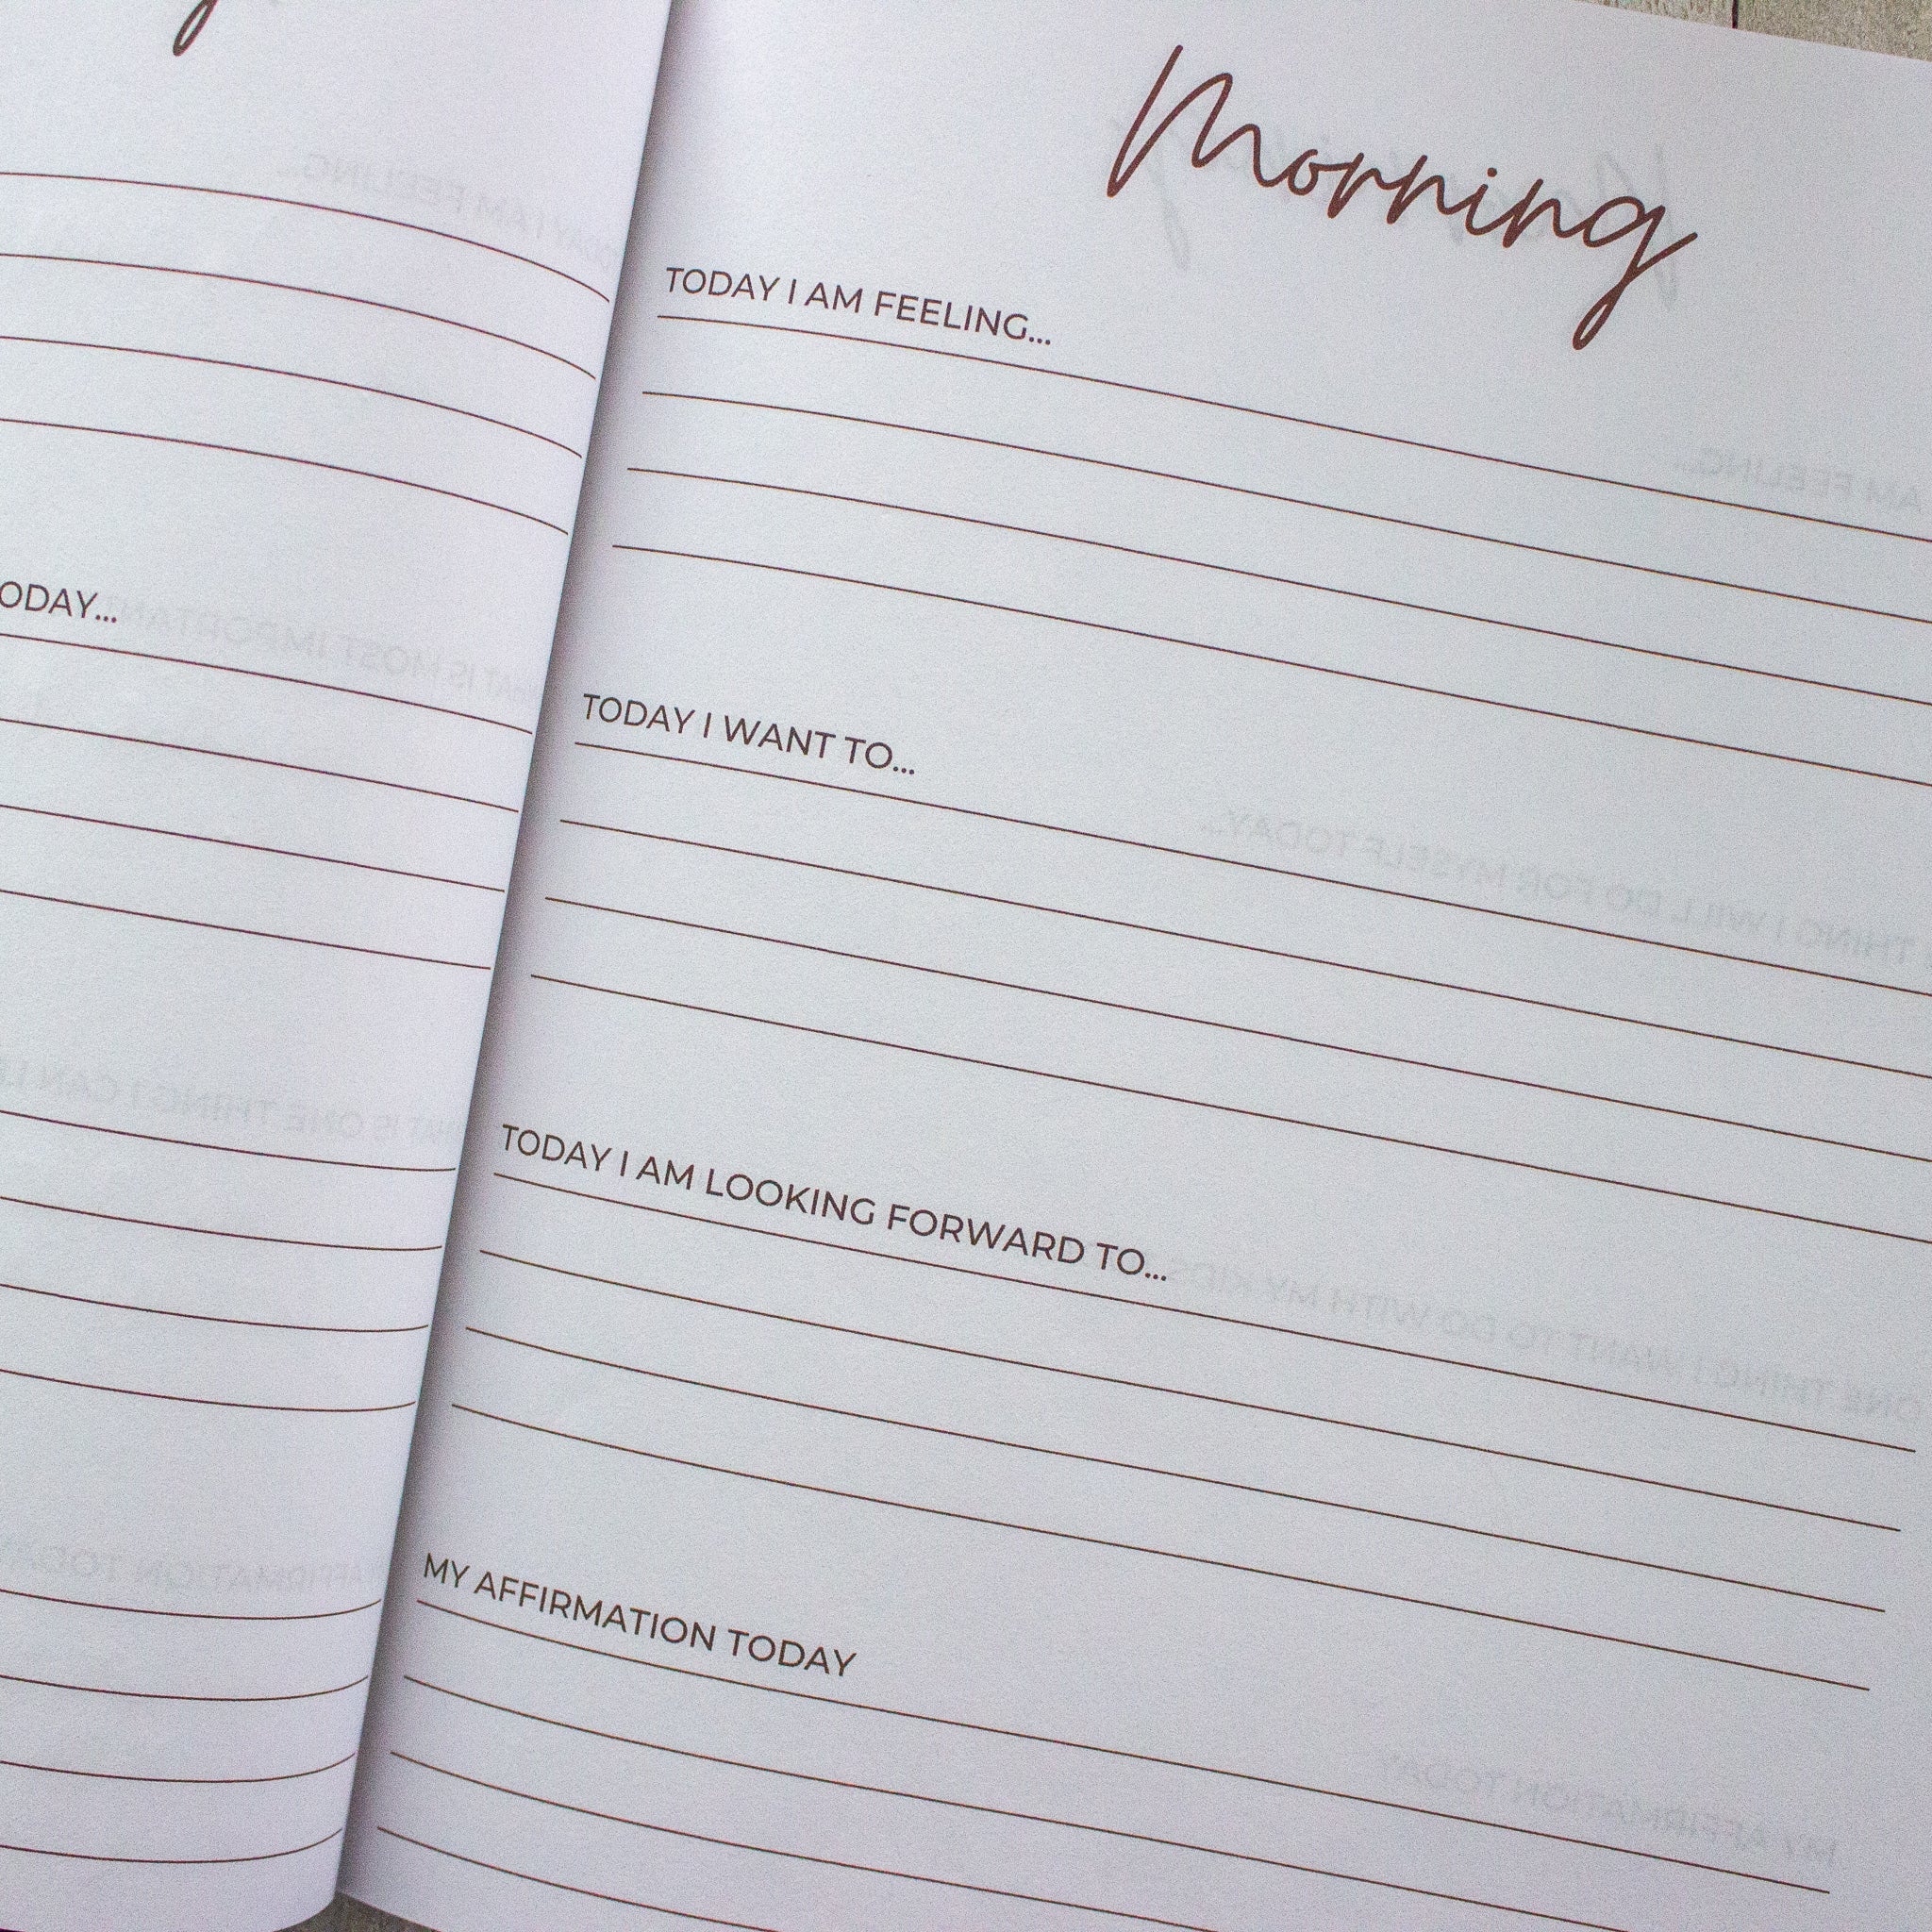 ODAY...
Morning
TODAY I AM FEELING...
TODAY I WANT TO...
TODAY I AM LOOKING FORWARD TO...
MY AFFIRMATION TODAY